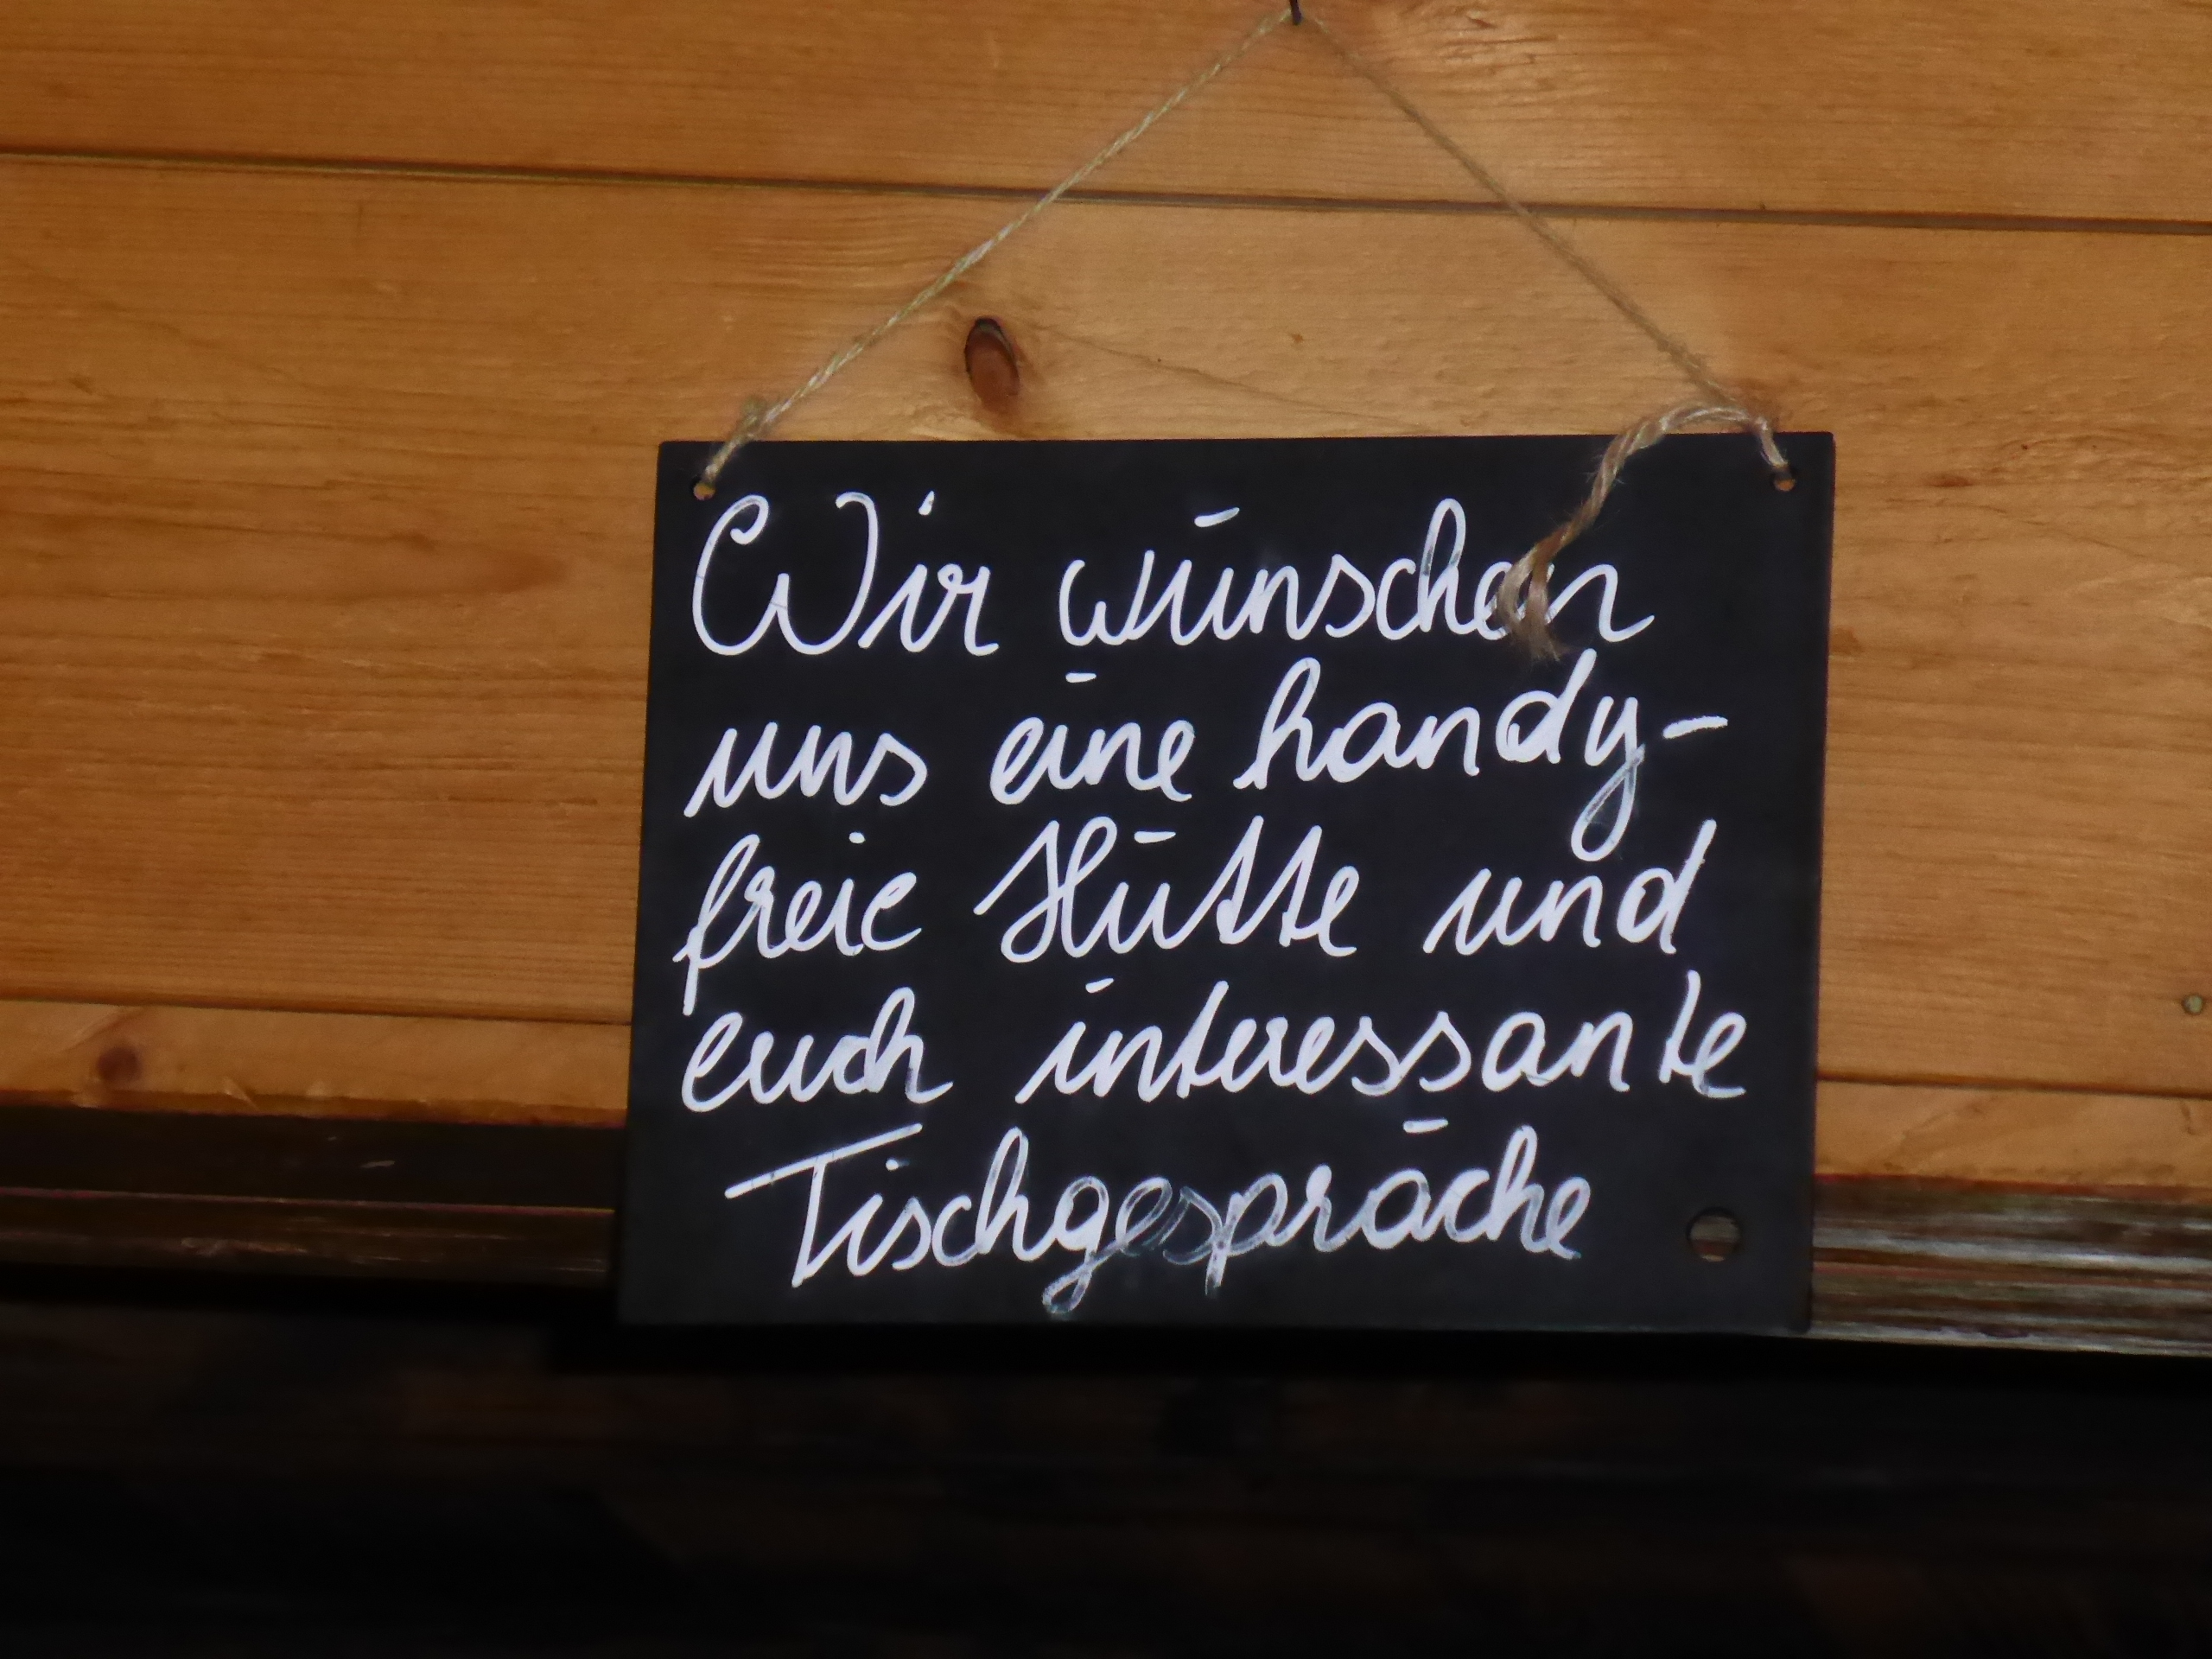 Wir wünschen
uns eine handy-
freie Hütte und
euch interessante
Tischgespräche